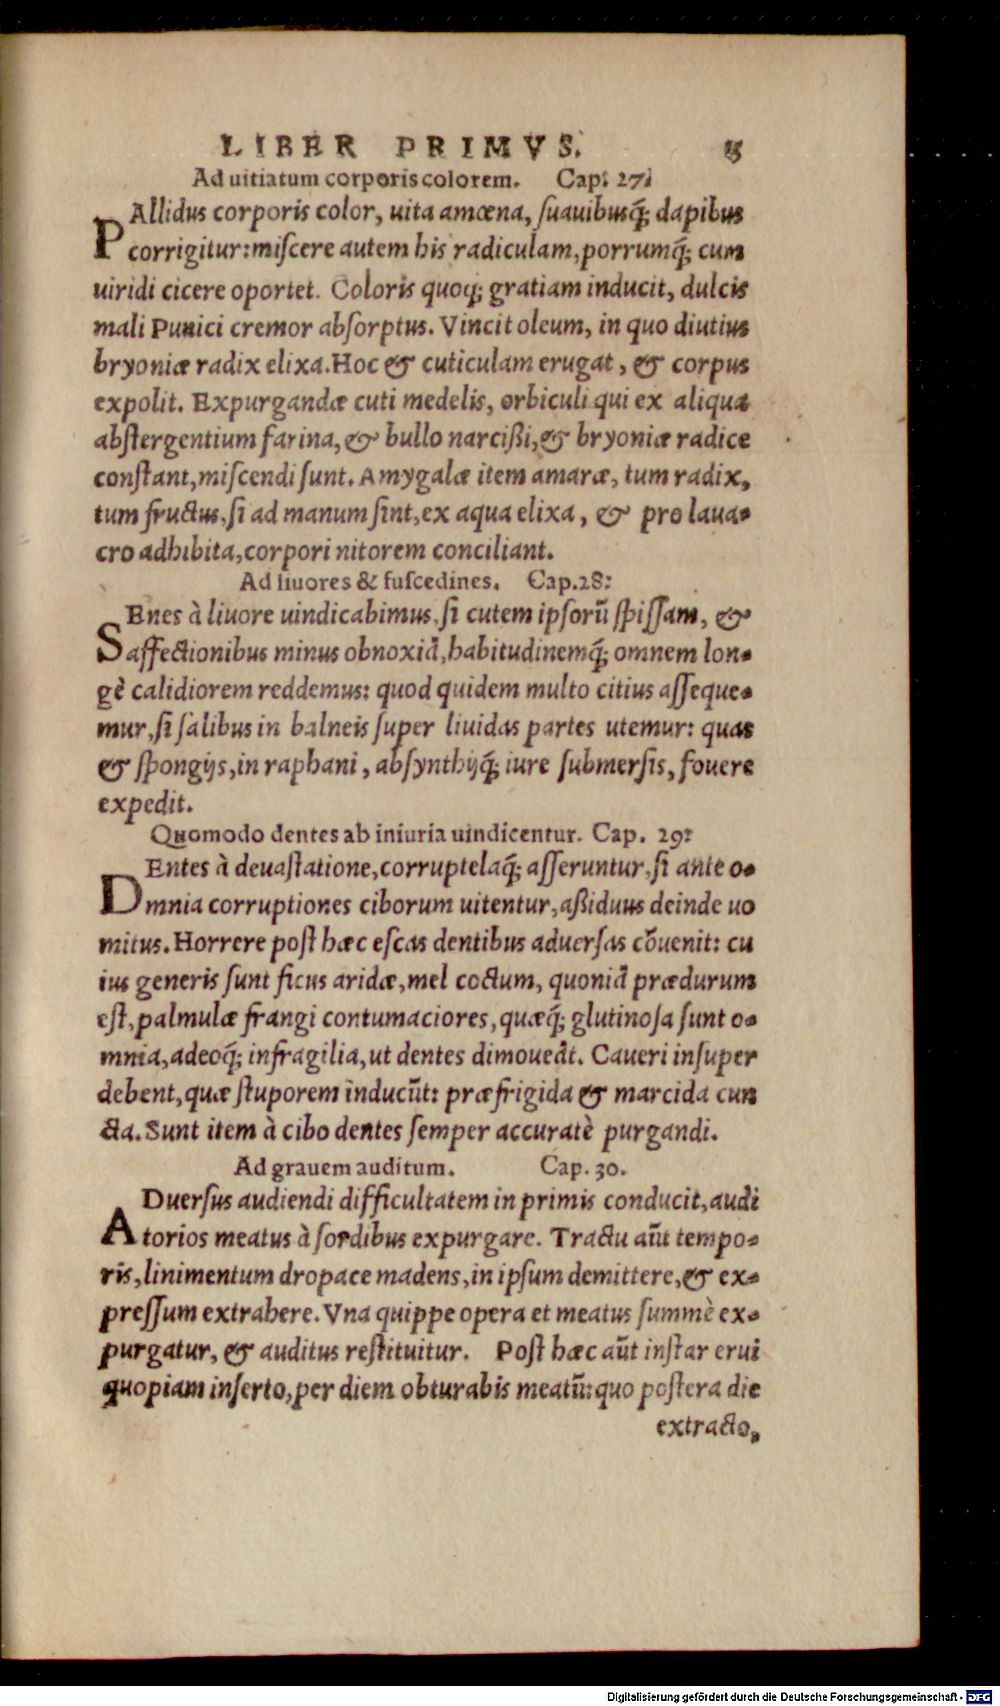 LIBER PRIMVS. 15
Ad uitiatum corporis colorem. Cap. 27.
PAllidus corporis color, uita amœna, ſuauibusq́; dapibus
corrigitur: miſcere autem his radiculam, porrumq́; cum
uiridi cicere oportet. Coloris quoq; gratiam inducit, dulcis
mali Punici cremor abſorptus. Vincit oleum, in quo diutius
bryoniæ radix elixa. Hoc & cuticulam erugat, & corpus
expolit. Expurgandæ cuti medelis, orbiculi qui ex aliqua
abſtergentium farina, & bullo narcißi, & bryoniæ radice
conſtant, miſcendi ſunt. Amygalæ item amaræ, tum radix,
tum fructus, ſi ad manum ſint, ex aqua elixa, & pro laua-
cro adhibita, corpori nitorem conciliant.
Ad liuores & fuſcedines. Cap. 28:
SEnes à liuore uindicabimus, ſi cutem ipſorũ ſpiſſam, &
affectionibus minus obnoxiã, habitudinemq́; omnem lon-
gè calidiorem reddemus: quod quidem multo citius aſſeque-
mur, ſi ſalibus in balneis ſuper liuidas partes utemur: quas
& ſpongijs, in raphani, abſynthijq́; iure ſubmerſis, fouere
expedit.
Quomodo dentes ab iniuria uindicentur. Cap. 29:
DEntes à deuaſtatione, corruptelaq́; aſſeruntur, ſi ante o-
mnia corruptiones ciborum uitentur, aßiduus deinde uo
mitus. Horrere poſt hæc eſcas dentibus aduerſas cõuenit: cu
ius generis ſunt ficus aridæ, mel coctum, quoniã prædurum
eſt, palmulæ frangi contumaciores, quæq́; glutinoſa ſunt o-
mnia, adeoq́; infragilia, ut dentes dimoueãt. Caueri inſuper
debent, quæ ſtuporem inducũt: præfrigida & marcida cun
cta. Sunt item à cibo dentes ſemper accuratè purgandi.
Ad grauem auditum. Cap. 30.
ADuerſus audiendi difficultatem in primis conducit, audi
torios meatus à ſordibus expurgare. Tractu aũt tempo-
ris, linimentum dropace madens, in ipſum demittere, & ex-
preſſum extrahere. Vna quippe opera et meatus ſummè ex-
purgatur, & auditus reſtituitur. Poſt hæc aũt inſtar erui
quopiam inſerto, per diem obturabis meatũ: quo poſtera die
extracto,
Digitalisierung gefördert durch die Deutsche Forschungsgemeinschaft - DFG